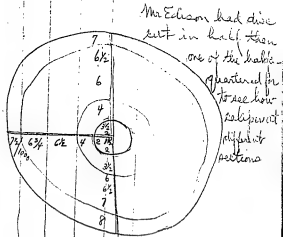 Mr Edison had disc
cut in half, then
one of the halves
quartered for
to see how
different
sections
7
6½
6
4
3½
7½ 6¾ 6½ 4 2 1½
2
3½
6
6½
7
8